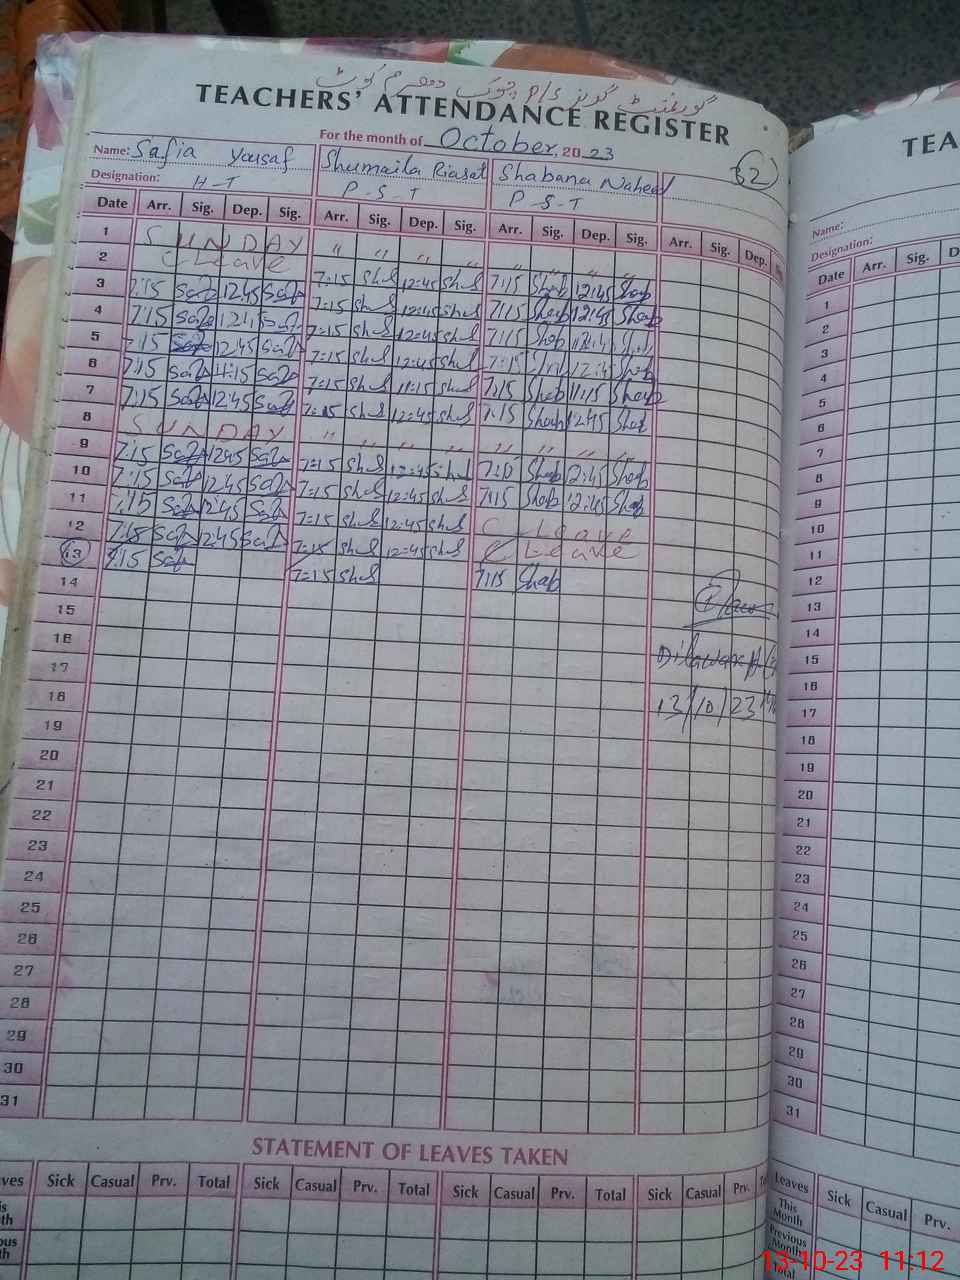 گورنمنٹ گرلز P/S چوک دھرم کوٹ
TEACHERS' ATTENDANCE REGISTER
For the month of October, 2023
32
Name: Safia Yousaf Shumaila Riasat Shabana Naheed
Designation: H-T P-S-T P-S-T
Date Arr. Sig. Dep. Sig. Arr. Sig. Dep. Sig. Arr. Sig. Dep. Sig. Arr. Sig. Dep.
1 SUNDAY " " " " " " " "
2 C Leave 7:15 Shul 12:45 Shul 7:15 Shab 12:45 Shab
3 7:15 Saf 12:45 Saf 7:15 Shul 12:45 Shul 7:15 Shab 12:45 Shab
4 7:15 Saf Saf 7:15 Shul 12:45 Shul 7:15 Shab Shab
5 7:15 Saf 12:45 Saf 7:15 Shul 12:45 Shul 7:15 Shab
6 7:15 Saf 11:15 Saf 7:15 Shul 11:15 Shul 7:15 Shab 11:15 Shab
7 7:15 Saf 12:45 Saf 7:15 Shul 12:45 Shul 7:15 Shab 12:45 Shab
8 SUNDAY " " " " " " " "
9 7:15 Saf 12:45 Saf 7:15 Shul 12:45 Shul Shab 12:45 Shab
10 7:15 Saf 12:45 Saf 7:15 Shul 12:45 Shul 7:15 Shab 12:45 Shab
11 7:15 Saf 12:45 Saf 7:15 Shul 12:45 Shul C Leave
12 7:15 Saf 12:45 Saf 7:15 Shul 12:45 Shul C Leave
13 7:15 Saf 7:15 Shul 7:15 Shab
14
15
16
17
18
19
20
21
22
23
24
25
26
27
28
29
30
31
13/10/23
STATEMENT OF LEAVES TAKEN
Sick Casual Prv. Total Sick Casual Prv. Total Sick Casual Prv. Total Sick Casual Prv.
TEA
Name:
Designation:
Date Arr. Sig. D
1
2
3
4
5
6
7
8
9
10
11
12
13
14
15
16
17
18
19
20
21
22
23
24
25
26
27
28
29
30
31
Leaves Sick Casual Prv.
This Month
Previous Month
Total
13-10-23 11:12